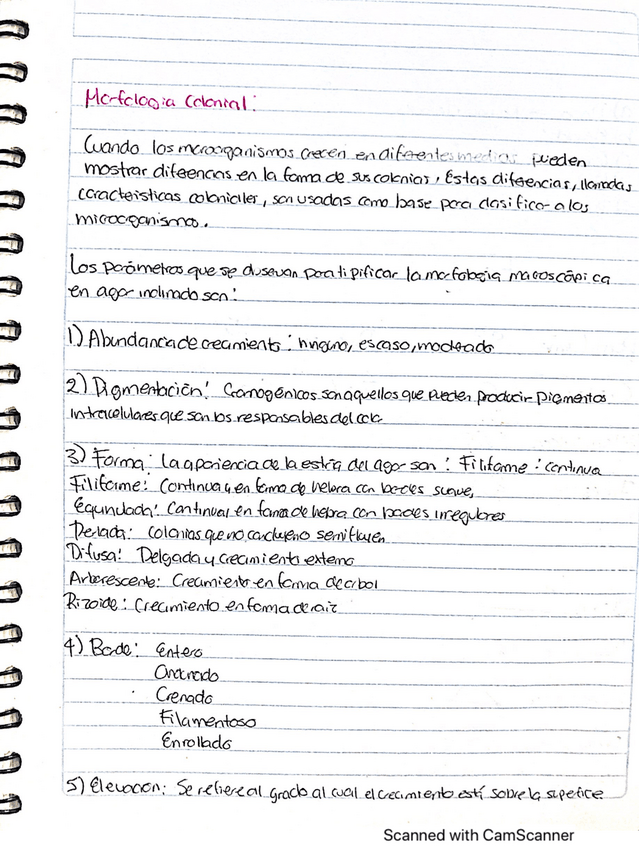 Morfología Colonial:
Cuando los microorganismos crecen en diferentes medios pueden
mostrar diferencias en la forma de sus colonias, Estas diferencias, llamadas
características coloniales, son usadas como base para clasificar a los
microorganismo.
Los parámetros que se observan para tipificar la morfología macroscópica
en agar inclinado son:
1) Abundancia de crecimiento: ninguno, escaso, moderado
2) Pigmentación: Cromogénicos son aquellos que pueden producir pigmentos
intracelulares que son los responsables del color
3) Forma: La apariencia de la estría del agar son: Filiforme: continua
Filiforme: Continua y en forma de hebra con bordes suave,
Equinulada: Continua, en forma de hebra con bordes irregulares
Perlada: Colonias que no confluyen o semifluyen
Difusa: Delgada y crecimiento externo
Arborescente: Crecimiento en forma de árbol
Rizoide: Crecimiento en forma de raíz
4) Borde: Entero
Ondulado
Crenado
Filamentoso
Enrollado
5) Elevación: Se refiere al grado al cual el crecimiento está sobre la superficie
Scanned with CamScanner